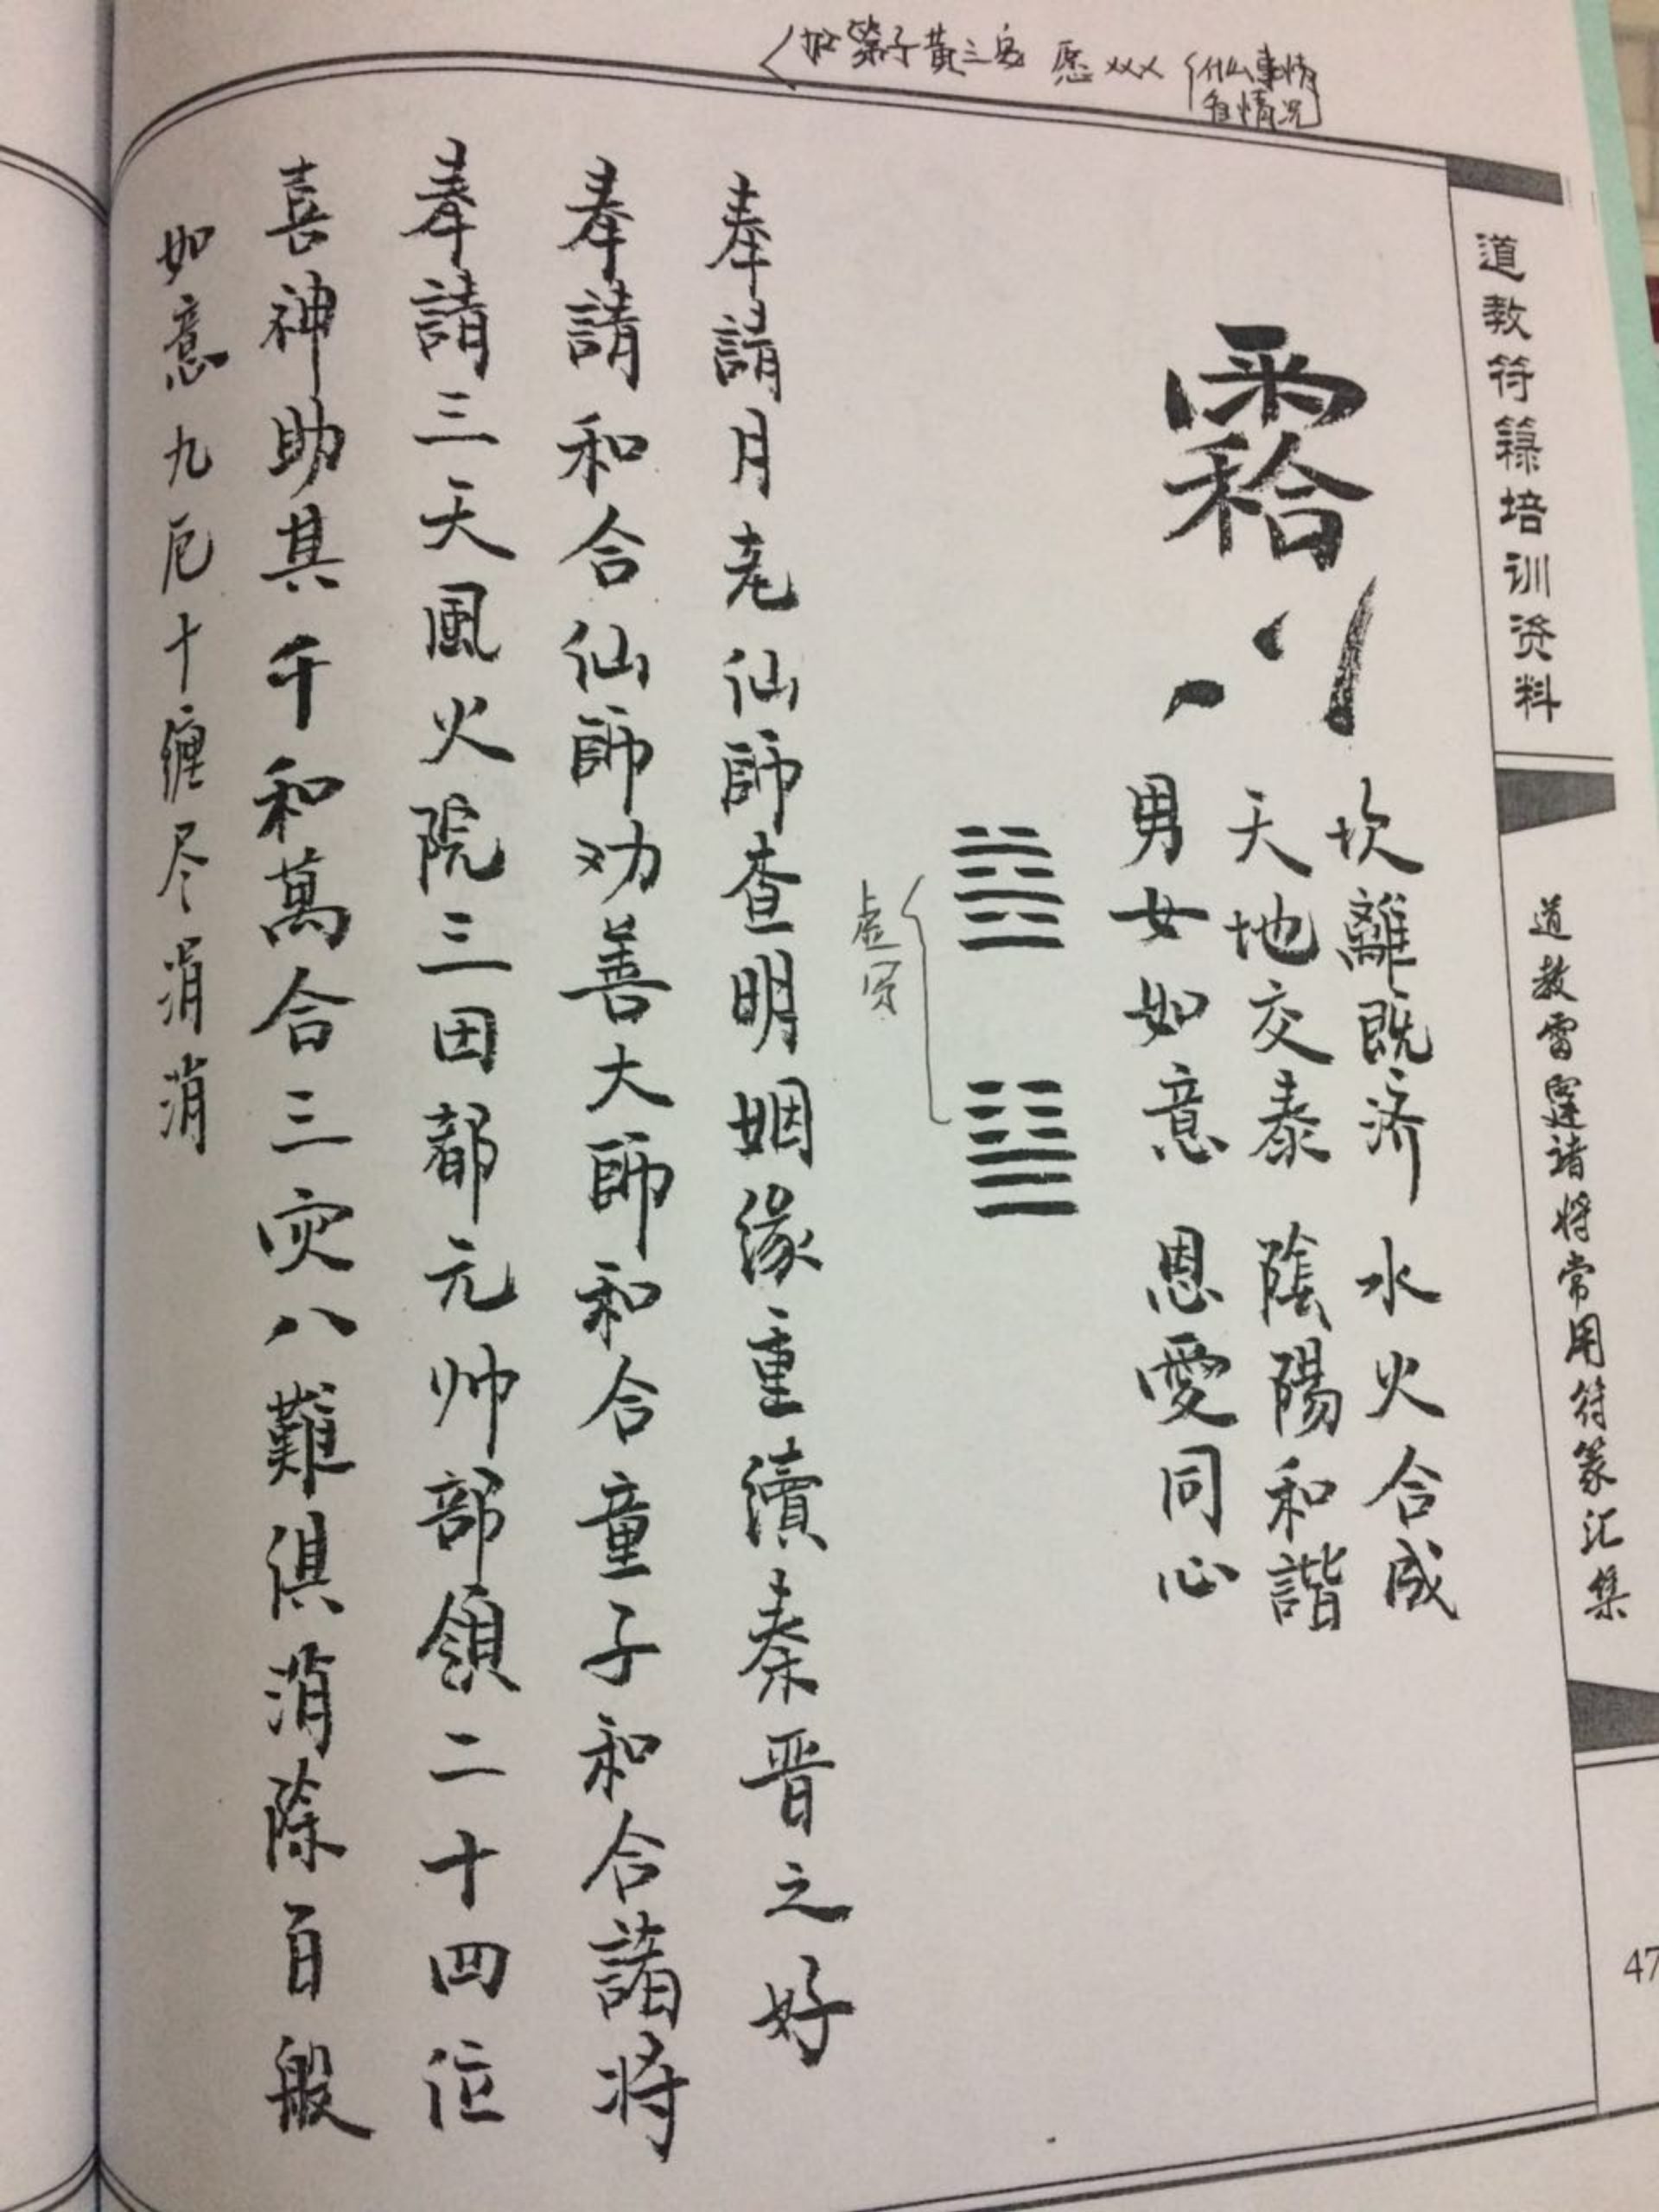 道教符籙培训资料
道教雷霆诸将常用符篆汇集
47
愿 xxx
什么事情
情况
坎離既济 水火合成
天地交泰 陰陽和諧
男女如意 恩愛同心
奉請月老仙師查明姻缘重續秦晋之好
奉請和合仙師劝善大師和合童子和合諸将
奉請三天風火院三田都元帅部領二十四位
喜神助其千和萬合三灾八難俱消除百般
如意九厄十纏尽消消